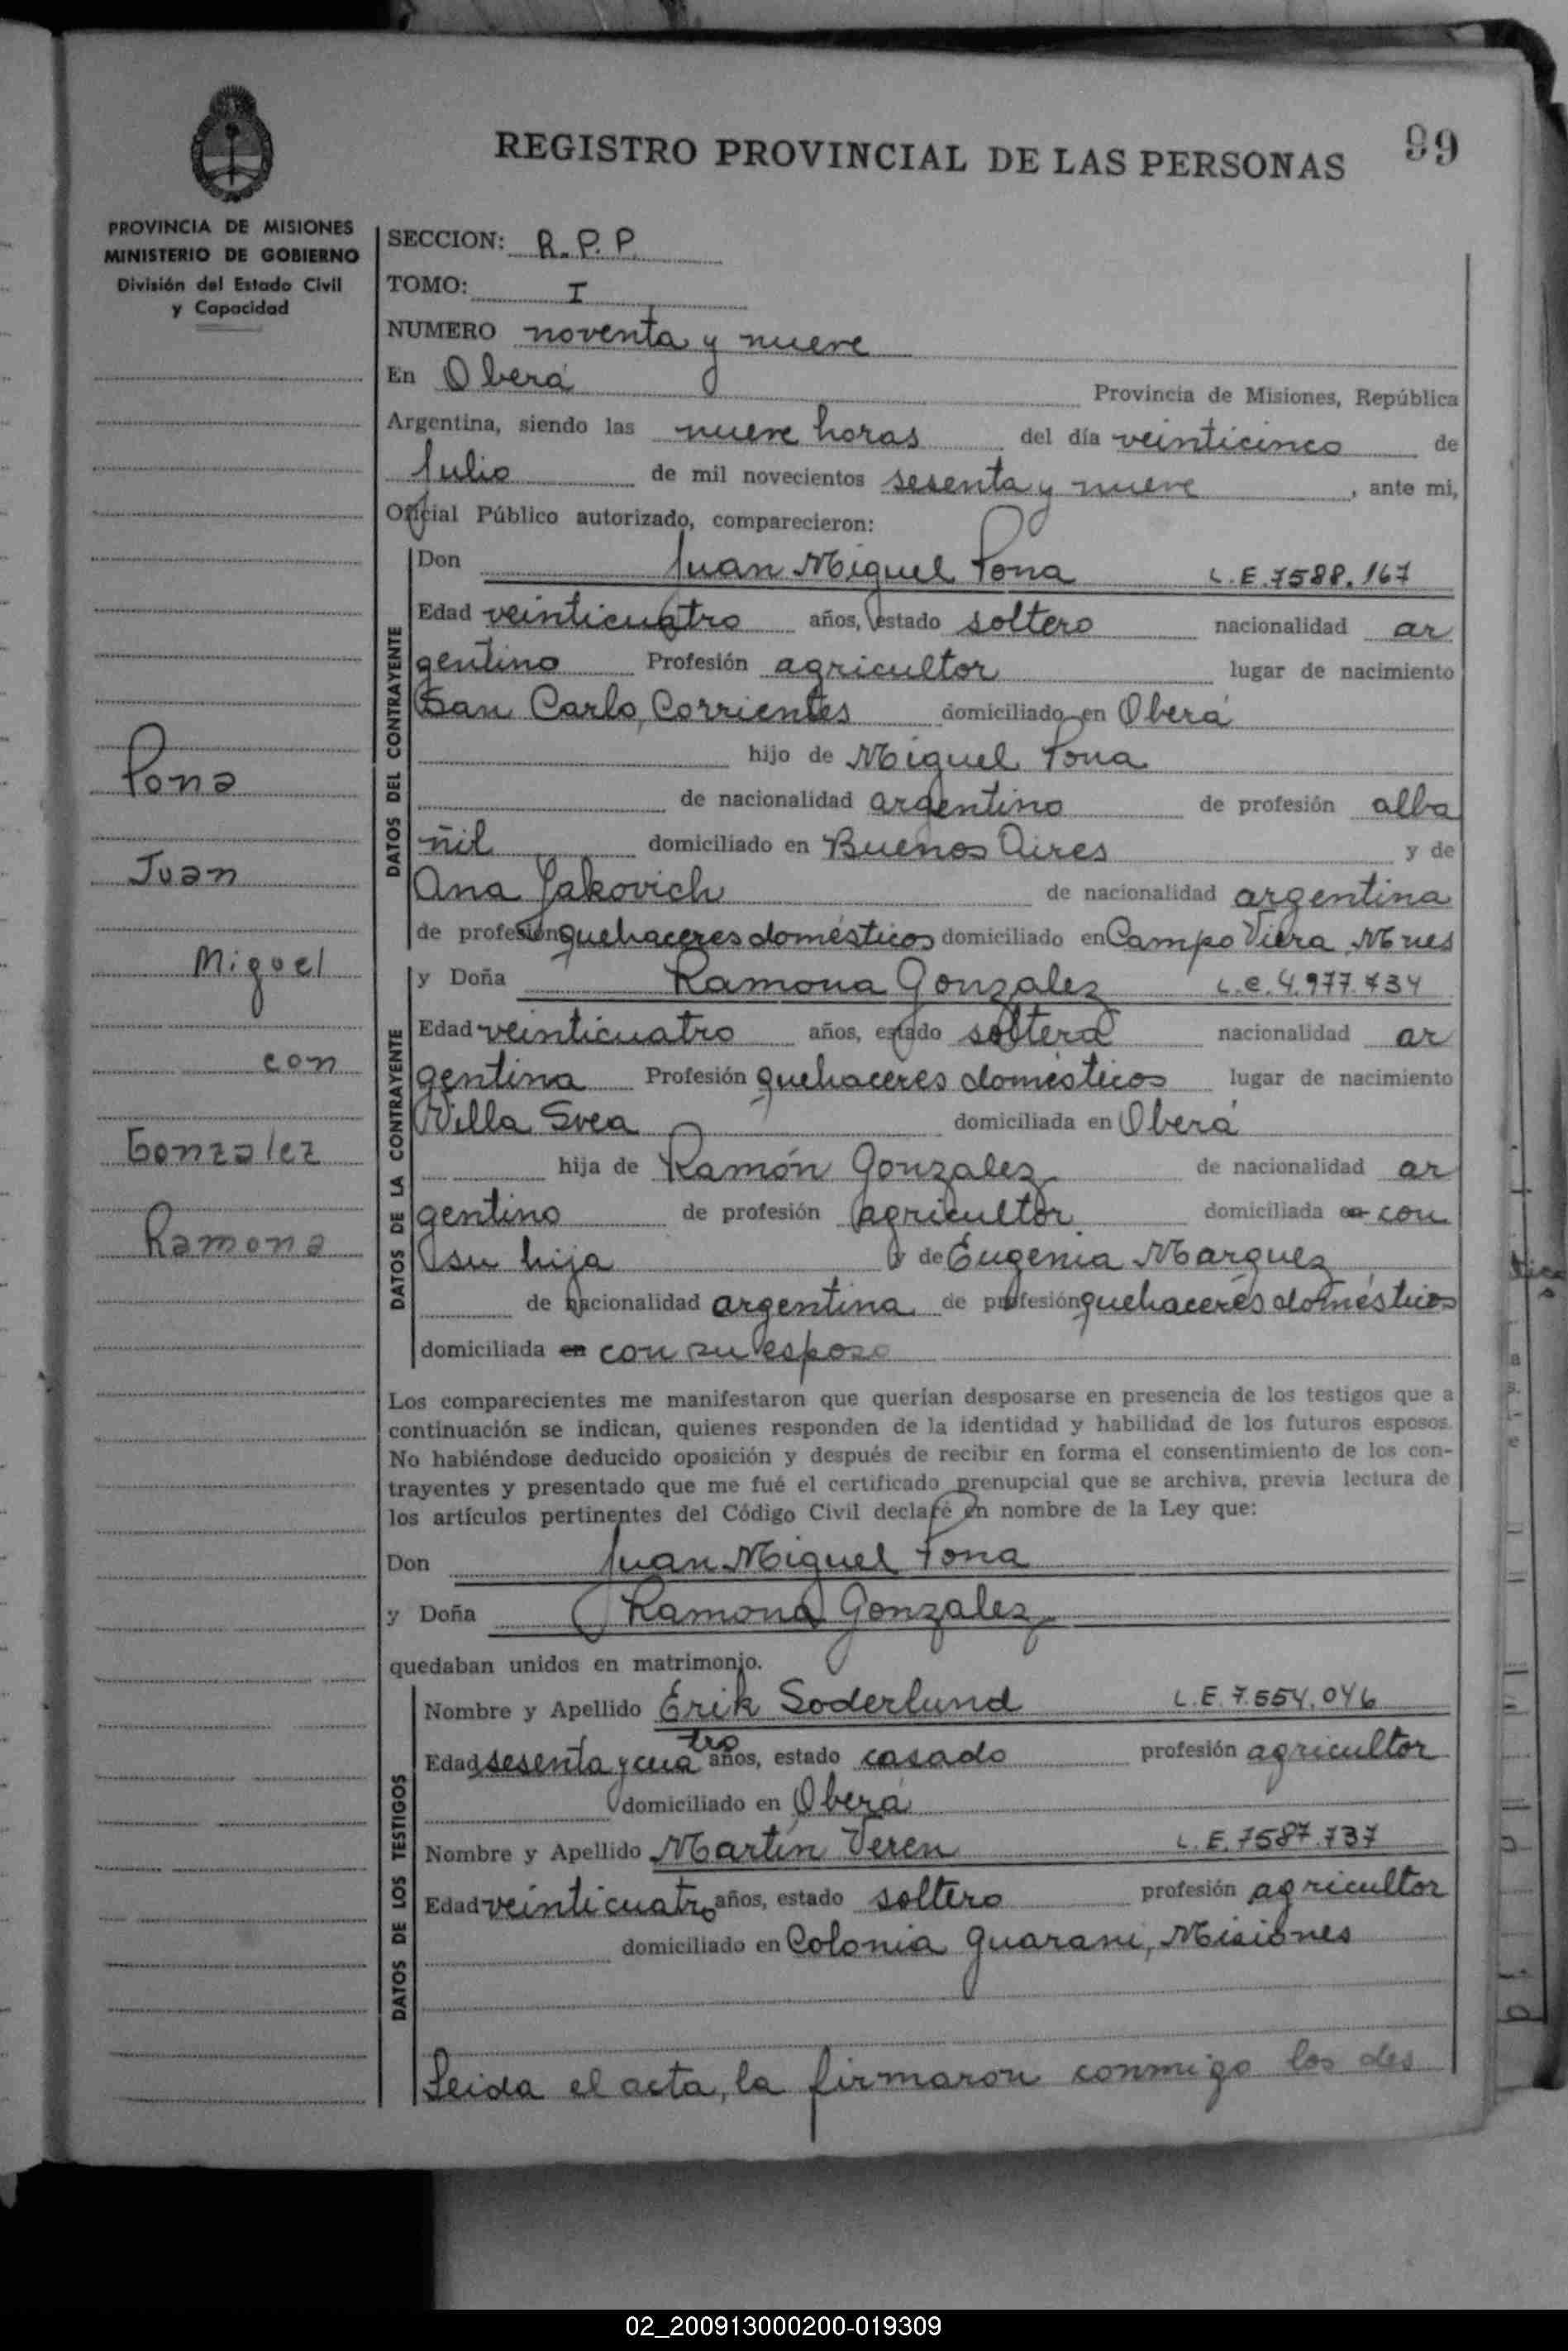 REGISTRO PROVINCIAL DE LAS PERSONAS 99
PROVINCIA DE MISIONES
MINISTERIO DE GOBIERNO
División del Estado Civil
y Capacidad
Pona
Juan
Miguel
con
Gonzalez
Ramona
SECCION: R.P.P.
TOMO: I
NUMERO noventa y nueve
En Oberá Provincia de Misiones, República
Argentina, siendo las nueve horas del día veinticinco de
Julio de mil novecientos sesenta y nueve, ante mi,
Oficial Público autorizado, comparecieron:
DATOS DEL CONTRAYENTE
Don Juan Miguel Pona L.E. 7588.167
Edad veinticuatro años, estado soltero nacionalidad ar
gentino Profesión agricultor lugar de nacimiento
San Carlo, Corrientes domiciliado en Oberá
hijo de Miguel Pona
de nacionalidad argentino de profesión alba
ñil domiciliado en Buenos Aires y de
Ana Jakovich de nacionalidad argentina
de profesión quehaceres domésticos domiciliado en Campo Viera, Mnes
DATOS DE LA CONTRAYENTE
y Doña Ramona Gonzalez L.C. 4.977.734
Edad veinticuatro años, estado soltera nacionalidad ar
gentina Profesión quehaceres domésticos lugar de nacimiento
Villa Svea domiciliada en Oberá
hija de Ramón Gonzalez de nacionalidad ar
gentino de profesión agricultor domiciliada en con
su hija y de Eugenia Marquez
de nacionalidad argentina de profesión quehaceres domésticos
domiciliada en con su esposo
Los comparecientes me manifestaron que querían desposarse en presencia de los testigos que a
continuación se indican, quienes responden de la identidad y habilidad de los futuros esposos.
No habiéndose deducido oposición y después de recibir en forma el consentimiento de los con-
trayentes y presentado que me fué el certificado prenupcial que se archiva, previa lectura de
los artículos pertinentes del Código Civil declaré en nombre de la Ley que:
Don Juan Miguel Pona
y Doña Ramona Gonzalez
quedaban unidos en matrimonio.
DATOS DE LOS TESTIGOS
Nombre y Apellido Erik Soderlund L.E. 7.554.046
Edad sesenta y cuatro años, estado casado profesión agricultor
domiciliado en Oberá
Nombre y Apellido Martín Veren L.E. 7587.737
Edad veinticuatro años, estado soltero profesión agricultor
domiciliado en Colonia Guarani, Misiones
Leida el acta, la firmaron conmigo los des
02_200913000200-019309